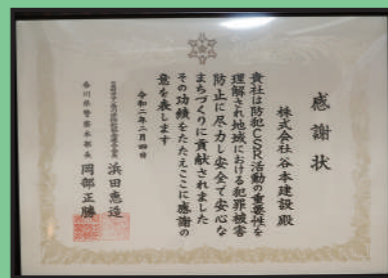 感謝状
株式会社谷本建設殿
貴社は防犯CSR活動の重要性を
理解され地域における犯罪被害
防止に尽力し安全で安心な
まちづくりに貢献されました
その功績をたたえここに感謝の
意を表します
令和二年二月四日
浜田恵造
香川県警察本部長 岡部正勝